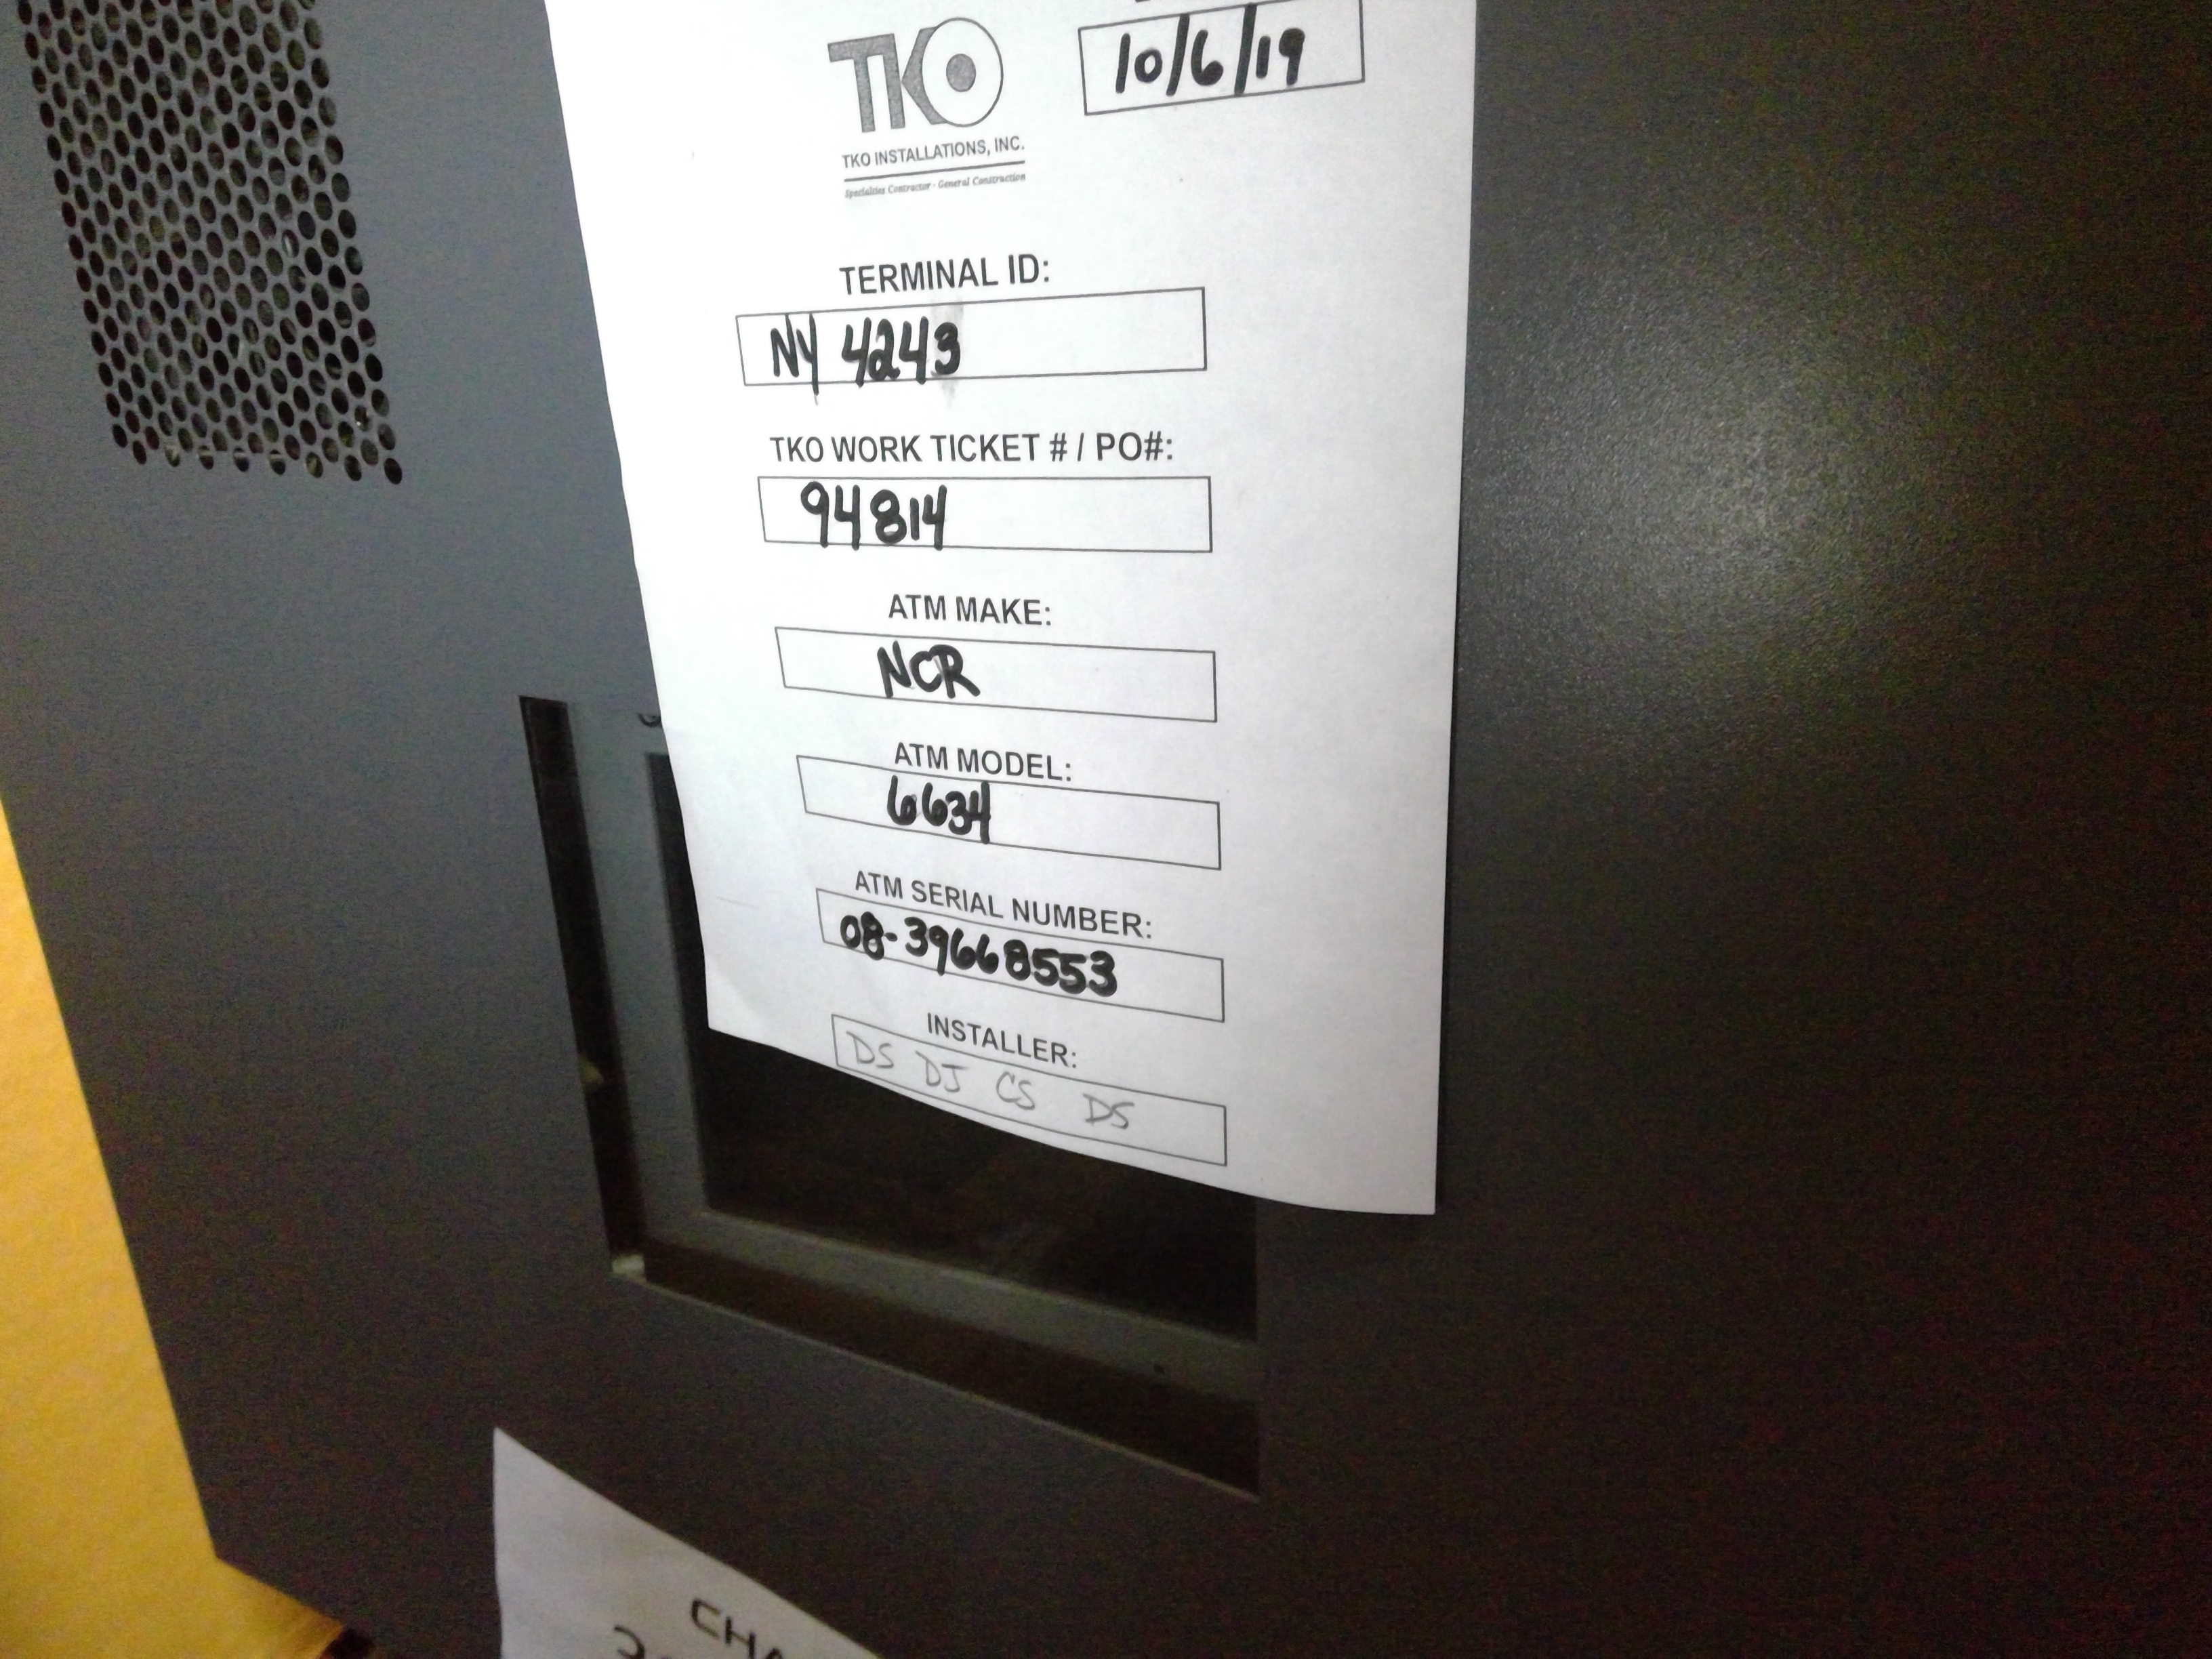 TKO
10/6/19
TKO INSTALLATIONS, INC.
Specialties Contractor - General Construction
TERMINAL ID:
NY 4243
TKO WORK TICKET # / PO#:
94814
ATM MAKE:
NCR
ATM MODEL:
6634
ATM SERIAL NUMBER:
08-39668553
INSTALLER:
DS DJ CS DS
CHA